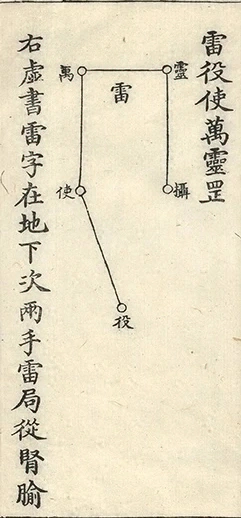 雷役使萬靈罡
靈
攝
雷
萬
使
役
右虛書雷字在地下次兩手雷局從腎腧